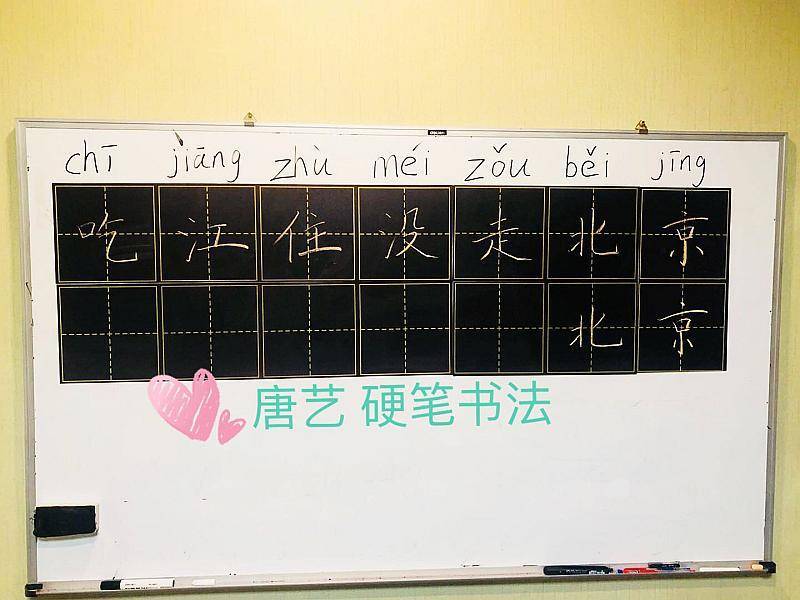 chī jiāng zhù méi zǒu běi jīng
吃 江 住 没 走 北 京
北 京
唐艺 硬笔书法